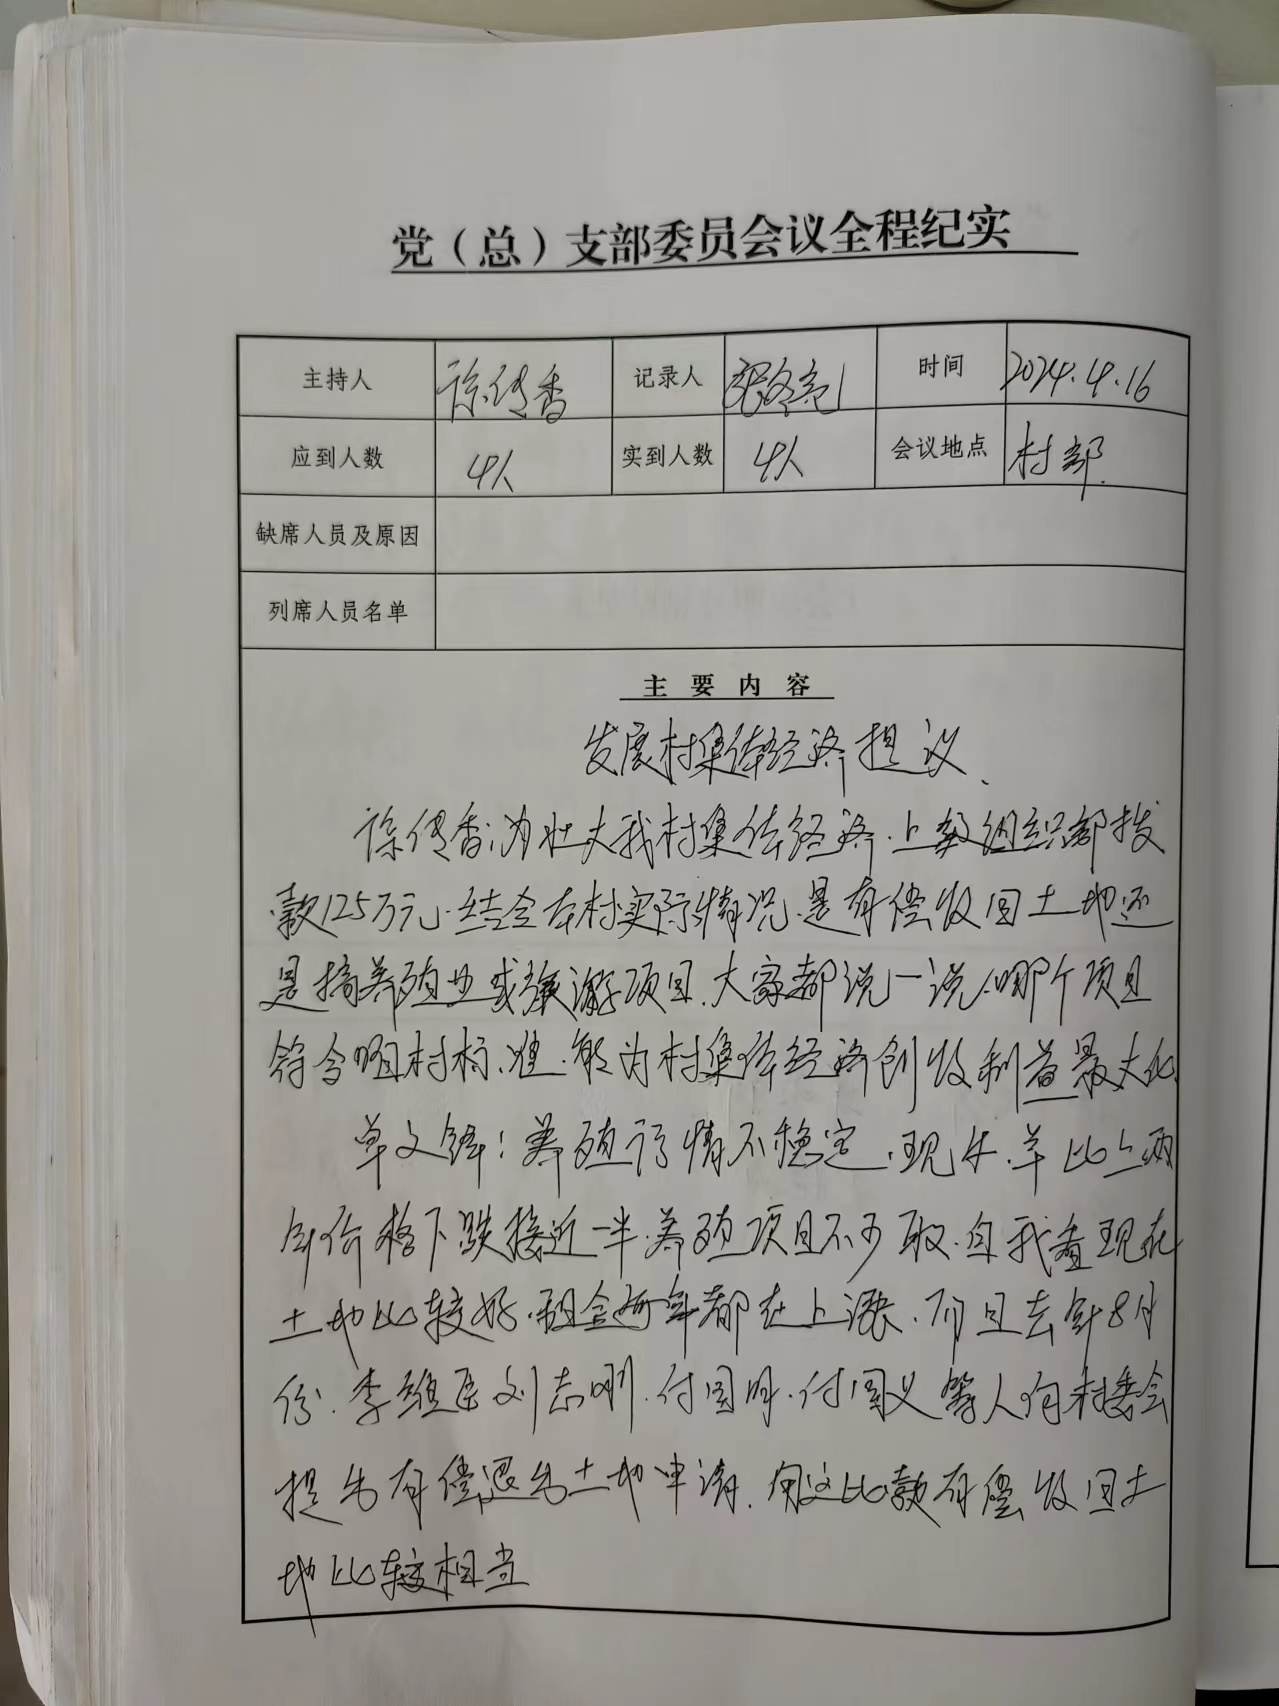 党（总）支部委员会议全程纪实
主持人 徐传香 记录人 时间 2024.4.16
应到人数 4人 实到人数 4人 会议地点 村部
缺席人员及原因
列席人员名单
主要内容
发展村集体经济提议
徐传香:为壮大我村集体经济.上级组织部拨
款125万元.结合本村实际情况.是有偿收回土地还
是搞养殖业或旅游项目.大家都说一说.哪个项目
符合咱村标准.能为村集体经济创收利益最大化
单文锋:养殖行情不稳定.现牛.羊比上两
年价格下跌接近一半.养殖项目不可取.自我看现在
土地比较好.租金每年都在上涨.而且去年8月
份.李维臣刘志刚.付国明.付国义等人向村委会
提出有偿退出土地申请.用这比款有偿收回土
地比较相当